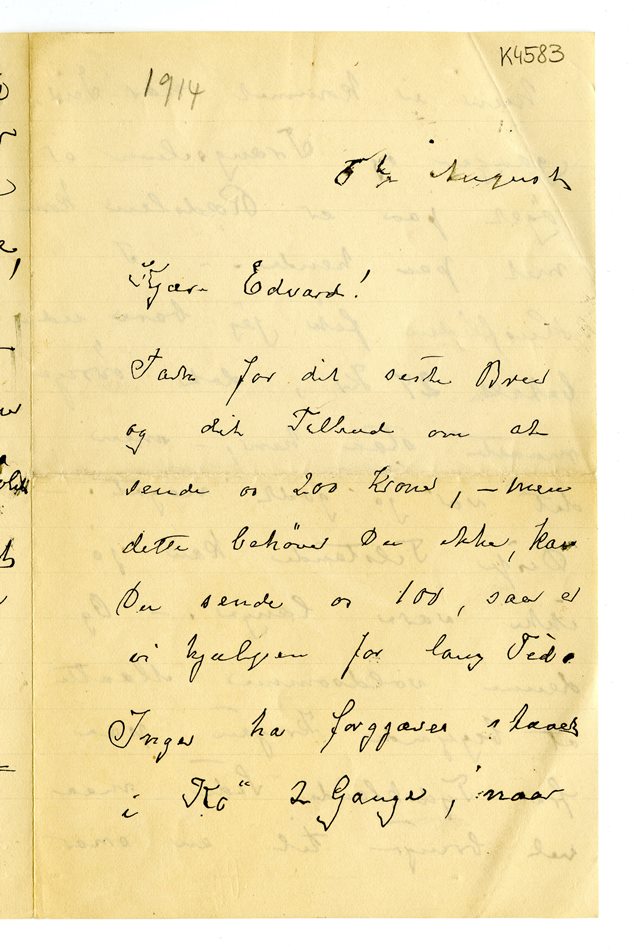 K4583
1914
1.
5te August
Kjære Edvard!
Tak for dit siste Brev
og dit Tilbud om at
sende os 200 Kroner, – men
dette behöver Du ikke, kan
Du sende os 100, saa er
vi hjulpen for lang Tid.
Inger har forgjæves staaet
i "Kö" 2 Gange, naar